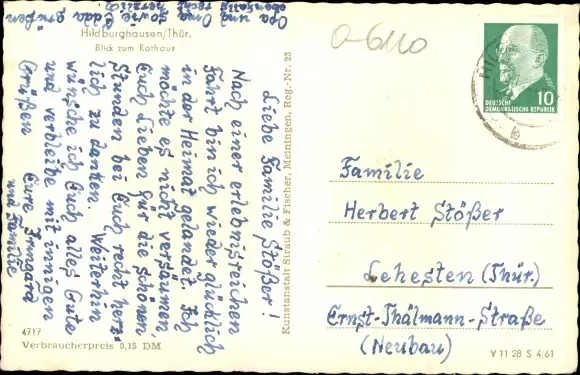 Opa und Oma sowie Edda grüßen
ebenfalls recht herzlich.
Hildburghausen/Thür.
Blick zum Rathaus
Liebe Familie Stößer!
Nach einer erlebnisreichen
Fahrt bin ich wieder glücklich
in der Heimat gelandet. Ich
möchte es nicht versäumen
Euch Lieben für die schönen
Stunden bei Euch recht herz-
lich zu danken. Weiterhin
wünsche ich Euch alles Gute
und verbleibe mit innigen
Grüßen Eure Irmgard
und Familie
4717
Verbraucherpreis 0,15 DM
Kunstanstalt Straub & Fischer, Meiningen, Reg.-Nr. 23
0-6110
10
DEUTSCHE
DEMOKRATISCHE REPUBLIK
b
Familie
Herbert Stößer
Lehesten (Thür.)
Ernst-Thälmann-Straße
(Neubau)
V 11 28 S 4/61